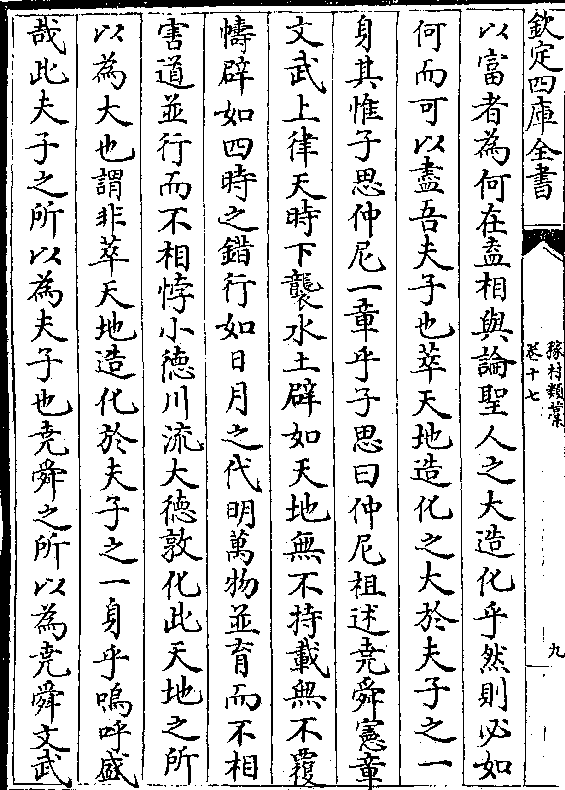 欽定四庫全書
稼村類藁
卷十七
九
以富者為何在盍相與論聖人之大造化乎然則必如
何而可以盡吾夫子也萃天地造化之大於夫子之一
身其惟子思仲尼一章乎子思曰仲尼祖述堯舜憲章
文武上律天時下襲水土辟如天地無不持載無不覆
幬辟如四時之錯行如日月之代明萬物並育而不相
害道並行而不相悖小德川流大德敦化此天地之所
以為大也謂非萃天地造化於夫子之一身乎嗚呼盛
哉此夫子之所以為夫子也堯舜之所以為堯舜文武